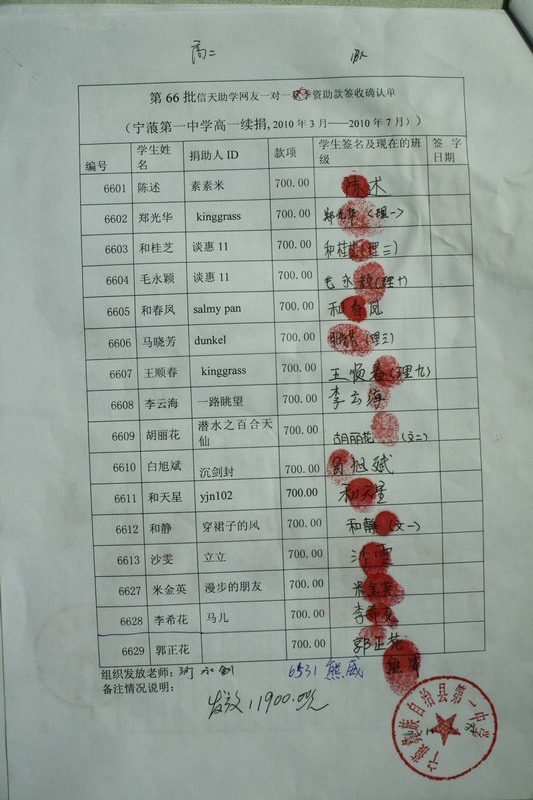 高二
第 66 批信天助学网友一对一秋季资助款签收确认单
(宁蒗第一中学高一续捐, 2010 年 3 月——2010 年 7 月))
编号 学生姓名 捐助人 ID 款项 学生签名及现在的班级 签字日期
6601 陈述 素素米 700.00 陈术
6602 郑光华 kinggrass 700.00 郑光华(理一)
6603 和桂芝 谈惠 11 700.00 和桂芝(理二)
6604 毛永颖 谈惠 11 700.00 毛永颖(理十)
6605 和春凤 salmy pan 700.00 和春凤
6606 马晓芳 dunkel 700.00 (理三)
6607 王顺春 kinggrass 700.00 王顺春(理九)
6608 李云海 一路眺望 700.00 李云海
6609 胡丽花 潜水之百合天仙 700.00 胡丽花(文二)
6610 白旭斌 沉剑封 700.00 白旭斌
6611 和天星 yjn102 700.00 和天星
6612 和静 穿裙子的风 700.00 和静(文一)
6613 沙雯 立立 700.00 沙雯
6627 米金英 漫步的朋友 700.00 米金英
6628 李希花 马儿 700.00 李希花
6629 郭正花 700.00 郭正花
组织发放老师: 6531 熊威 熊威
备注情况说明:
发放11900.00元
宁蒗彝族自治县第一中学